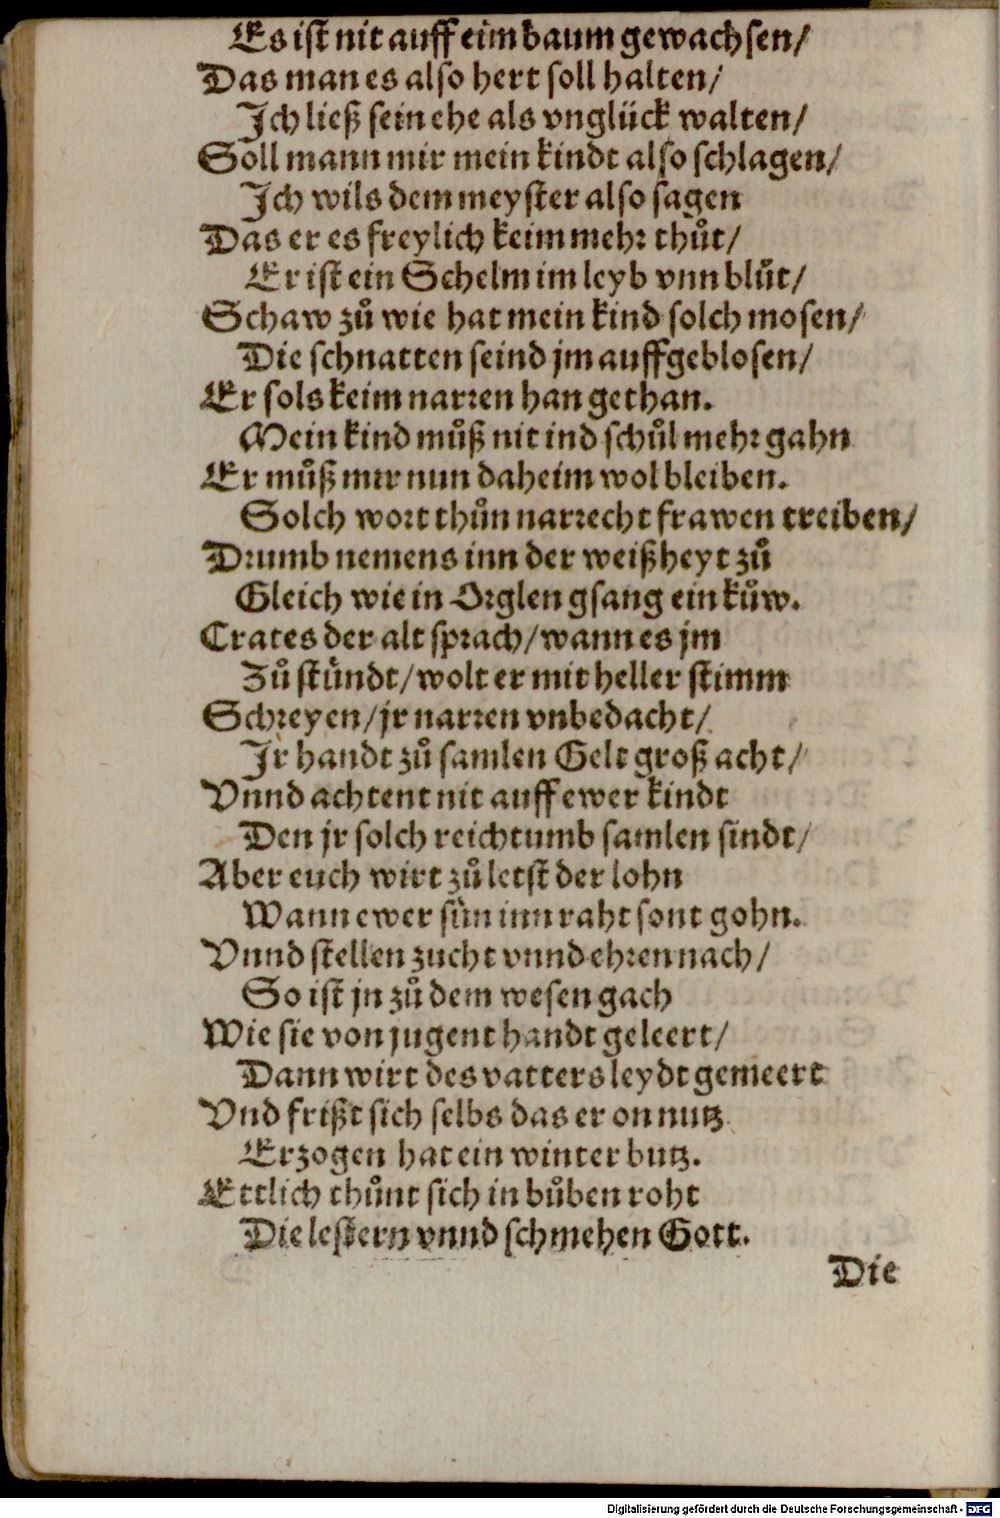 Es ist nit auff eim baum gewachsen/
Das man es also hert soll halten/
Ich ließ sein ehe als vnglück walten/
Soll mann mir mein kindt also schlagen/
Ich wils dem meyster also sagen
Das er es freylich keim mehr thůt/
Er ist ein Schelm im leyb vnn blůt/
Schaw zů wie hat mein kind solch mosen/
Die schnatten seind jm auffgeblosen/
Er sols keim narren han gethan.
Mein kind můß nit ind schůl mehr gahn
Er můß mir nun daheim wol bleiben.
Solch wort thůn narrecht frawen treiben/
Drumb nemens inn der weißheyt zů
Gleich wie in Orglen gsang ein kůw.
Crates der alt sprach/wann es jm
Zů stündt/wolt er mit heller stimm
Schreyen/jr narren vnbedacht/
Ir handt zů samlen Gelt groß acht/
Vnnd achtent nit auff ewer kindt
Den jr solch reichtumb samlen sindt/
Aber euch wirt zů letst der lohn
Wann ewer sün inn raht sont gohn.
Vnnd stellen zucht vnnd ehren nach/
So ist jn zů dem wesen gach
Wie sie von jugent handt geleert/
Dann wirt des vatters leydt gemeert
Vnd frißt sich selbs das er on nutz
Erzogen hat ein winter butz.
Ettlich thůnt sich in bůben roht
Die lestern vnnd schmehen Gott.
Die
Digitalisierung gefördert durch die Deutsche Forschungsgemeinschaft - DFG